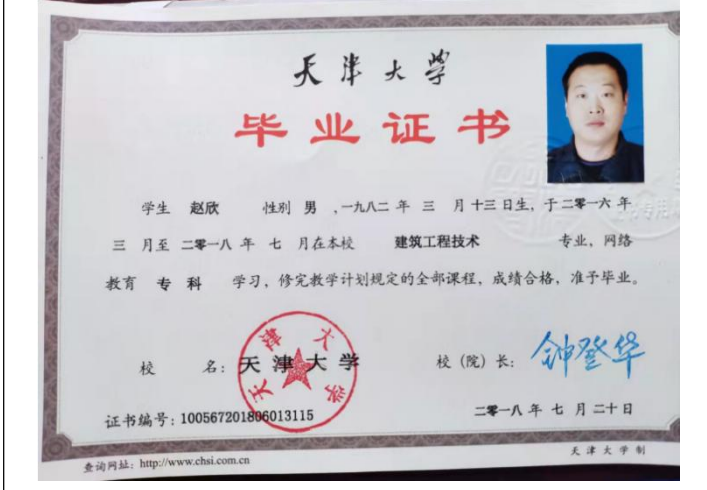 天津大学
毕业证书
学生 赵欣 性别 男 ,一九八二 年 三 月 十三 日生，于二零一六 年
三 月至 二零一八 年 七 月在本校 建筑工程技术 专业，网络
教育 专 科 学习，修完教学计划规定的全部课程，成绩合格，准予毕业。
校 名：天 津 大 学 校（院）长：钟登华
天津大学
证书编号：100567201806013115 二零一八 年 七 月 二十 日
查询网址：http://www.chsi.com.cn 天津大学制